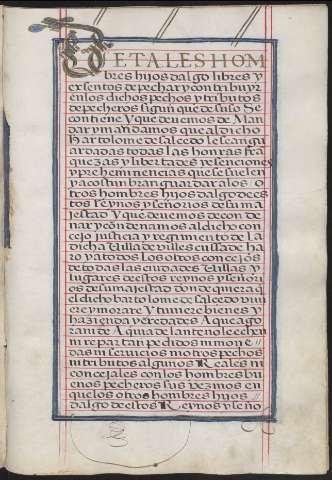 DE TALES HOM
bres hijos dalgo libres y
exsentos de pechar y contribuyr
en los dichos pechos y tributos
de pecheros sigun que de suso se
contiene Y que devemos de Man
dar y mandamos que al dicho
Bartolome de salcedo le sean gu
ardadas todas las honrras fra
quezas y libertades y esenciones
y prehemi nencias que se suelen
y acostunbran guardar a los o
tros hombres hijos dalgo de es
tos reynos y señorios de su ma
jestad Y que devemos de con de
nar y condenamos al dicho con
cejo justicia y regimiento de la
dicha Villa de villescussa de ha
ro y a todos los otros concejos
de todas las ciudades Villas y
lugares de estos reynos y señori
os de su majestad donde quiera q̃
el dicho bartolome de salcedo vivi
ere y morare Y tuviere bienes y
hazienda y eredades A que agora
ni de A qua delante no le echen
ni repartan pedidos ni mone
das ni servicios ni otros pechos
ni tributos algunos Reales ni
concejales con los hombres bu
enos pecheros sus vezinos en
que los otros hombres hijos
dalgo de estos Reynos y seño